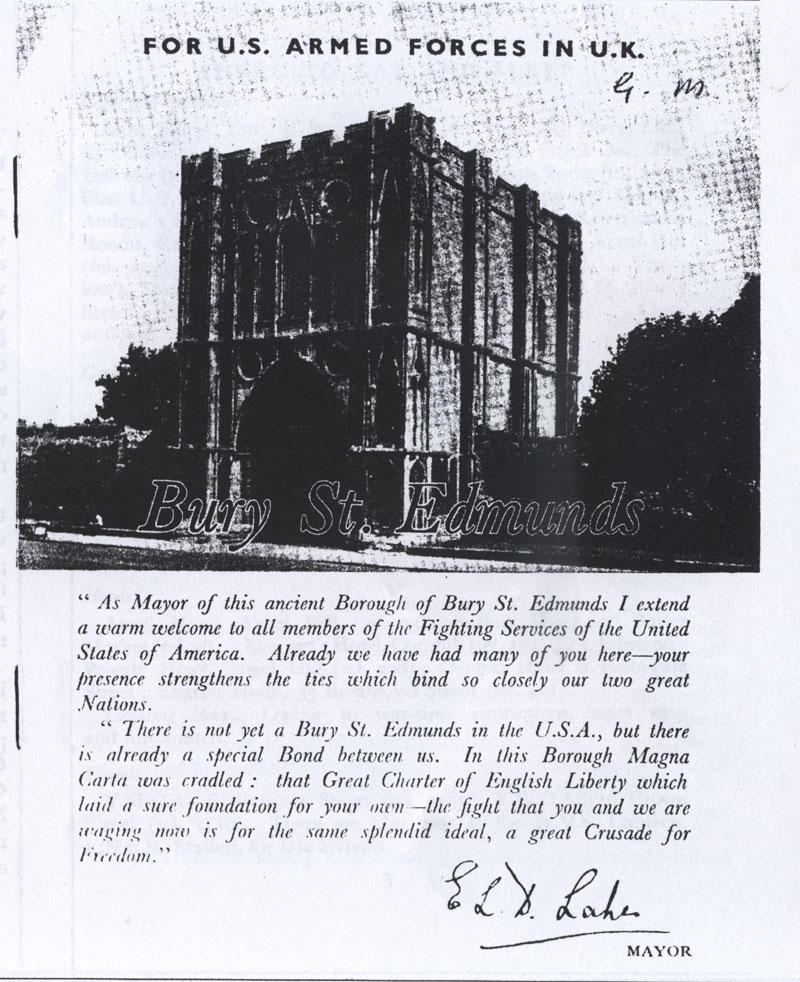 FOR U.S. ARMED FORCES IN U.K.
G. M.
Bury St. Edmunds
“ As Mayor of this ancient Borough of Bury St. Edmunds I extend
a warm welcome to all members of the Fighting Services of the United
States of America. Already we have had many of you here—your
presence strengthens the ties which bind so closely our two great
Nations.
“ There is not yet a Bury St. Edmunds in the U.S.A., but there
is already a special Bond between us. In this Borough Magna
Carta was cradled : that Great Charter of English Liberty which
laid a sure foundation for your own—the fight that you and we are
waging now is for the same splendid ideal, a great Crusade for
Freedom.”
E L D. Lake
MAYOR